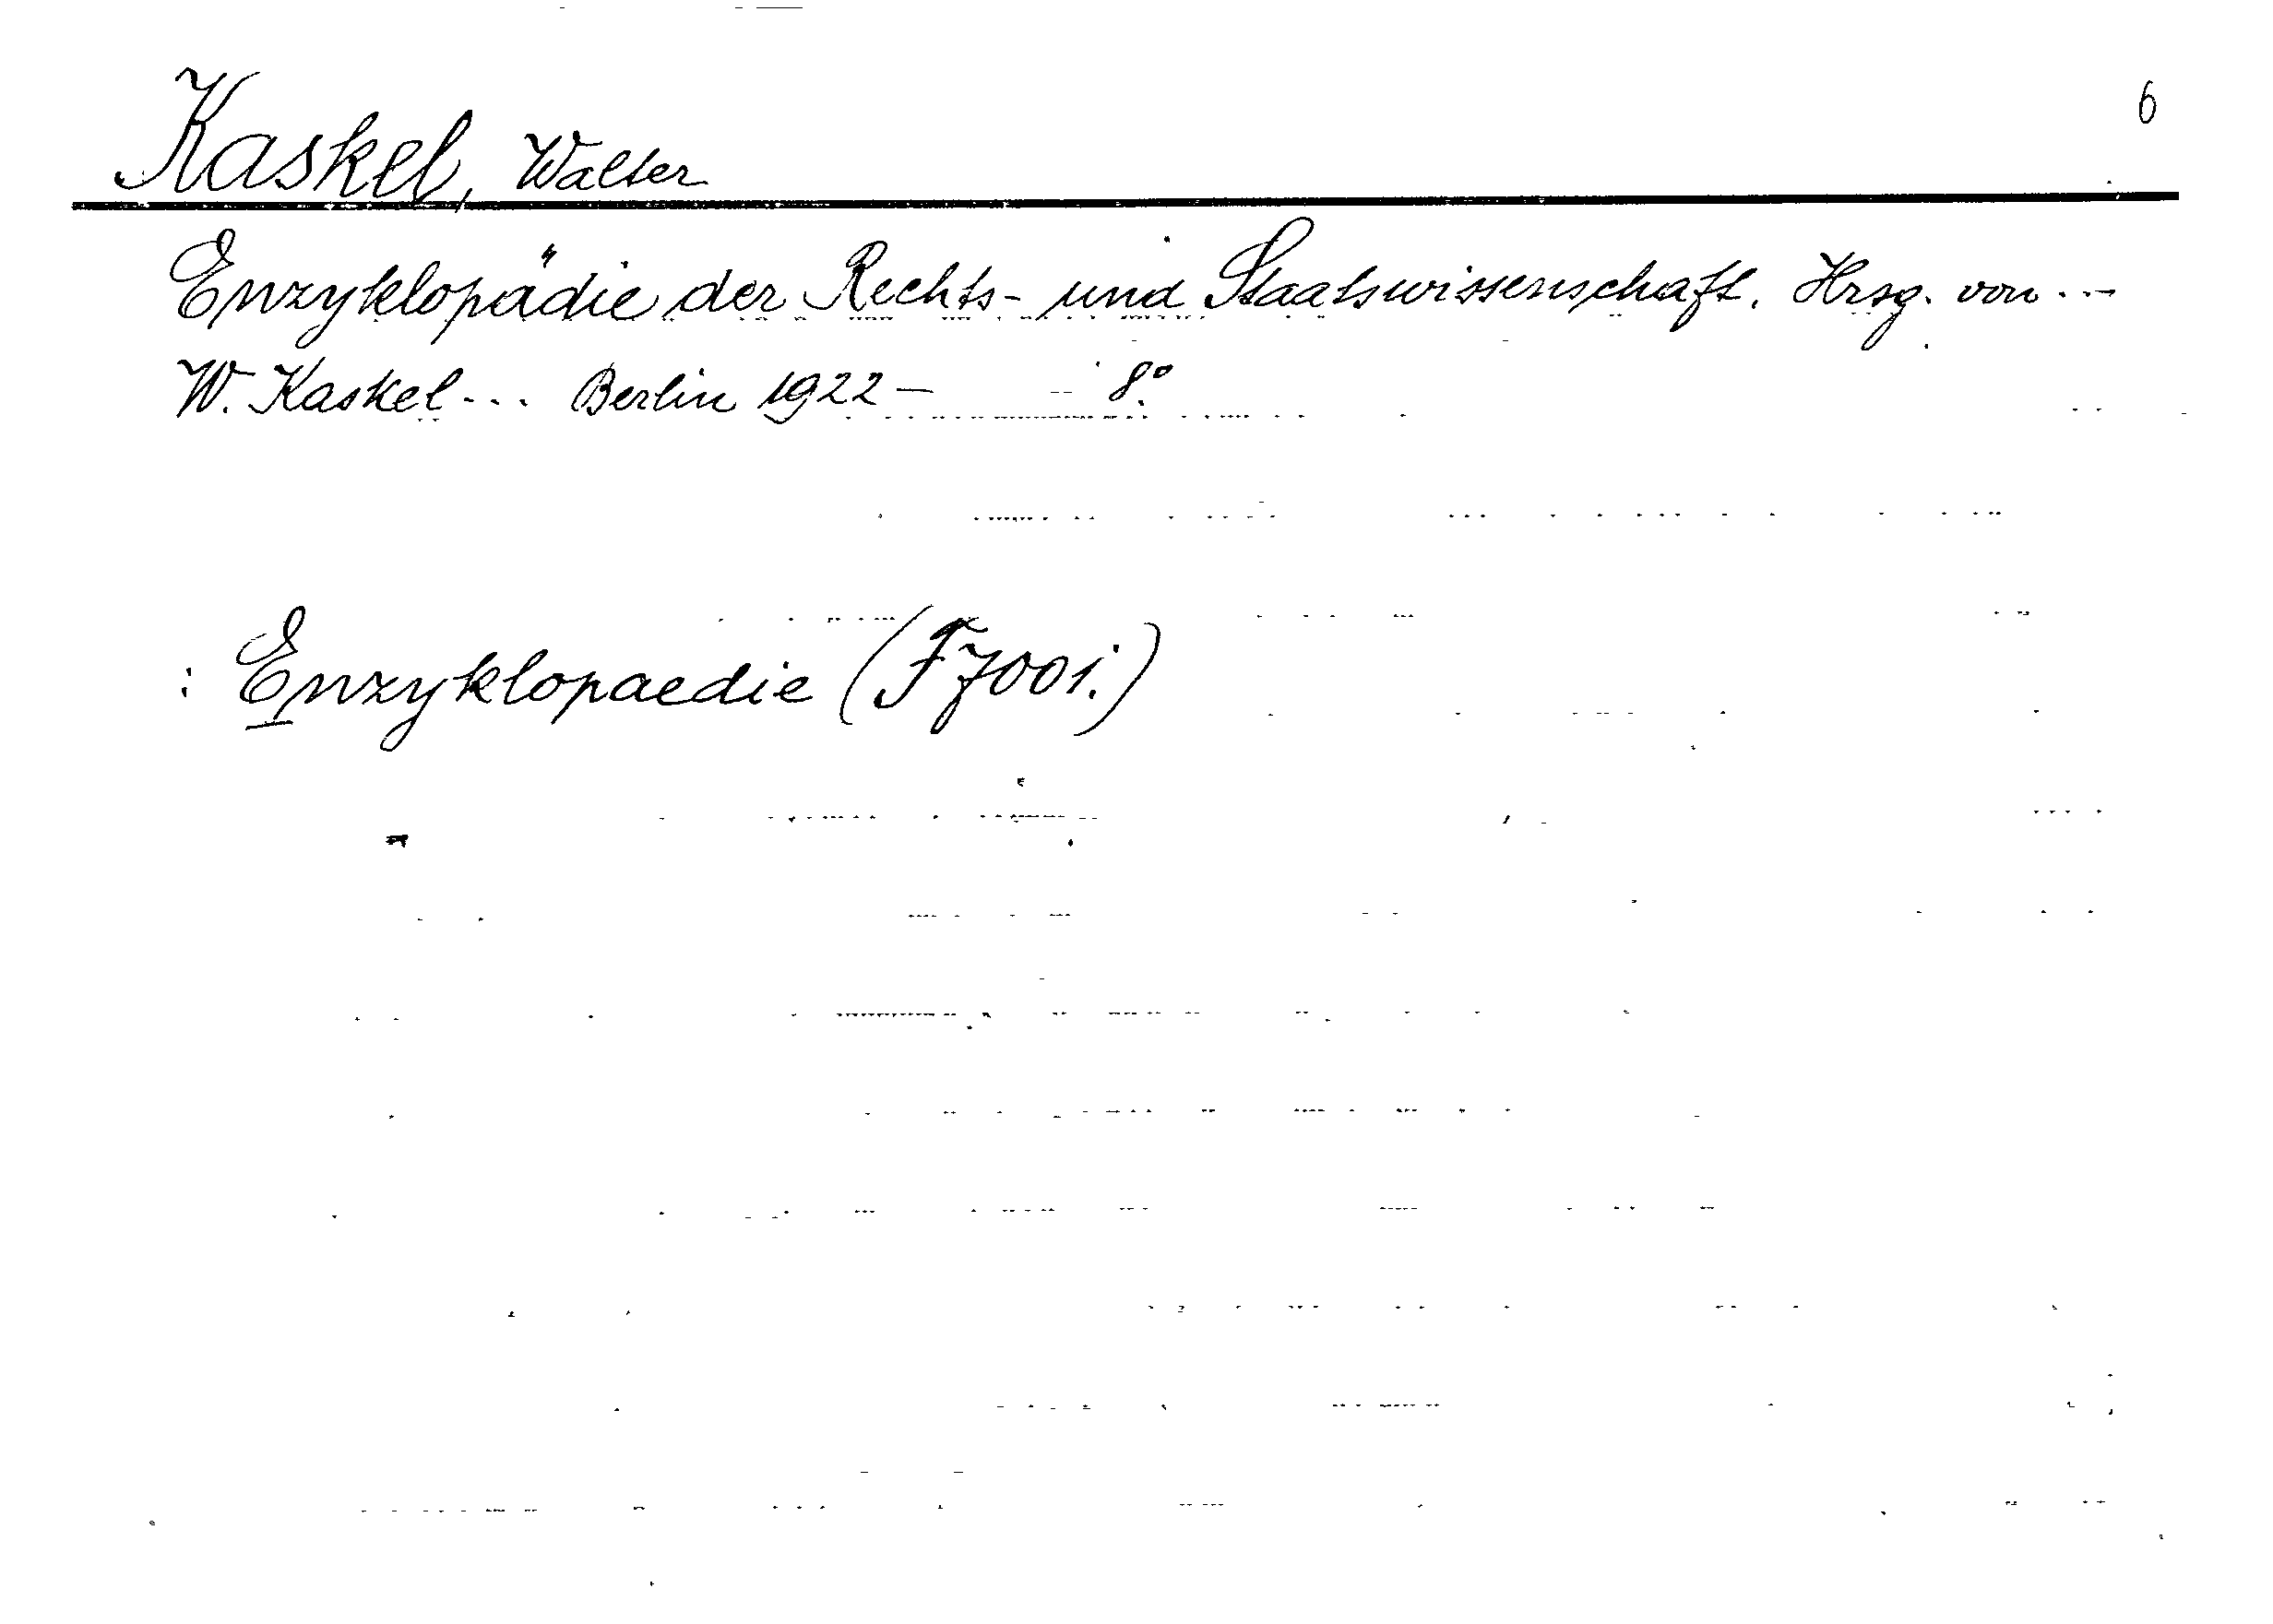 6
Kaskel, Walter
Enzyklopädie der Rechts- und Staatswissenschaft. Hrsg. von ...
W. Kaskel ... Berlin 1922 — 8°.
: Enzyklopaedie (F7001.)